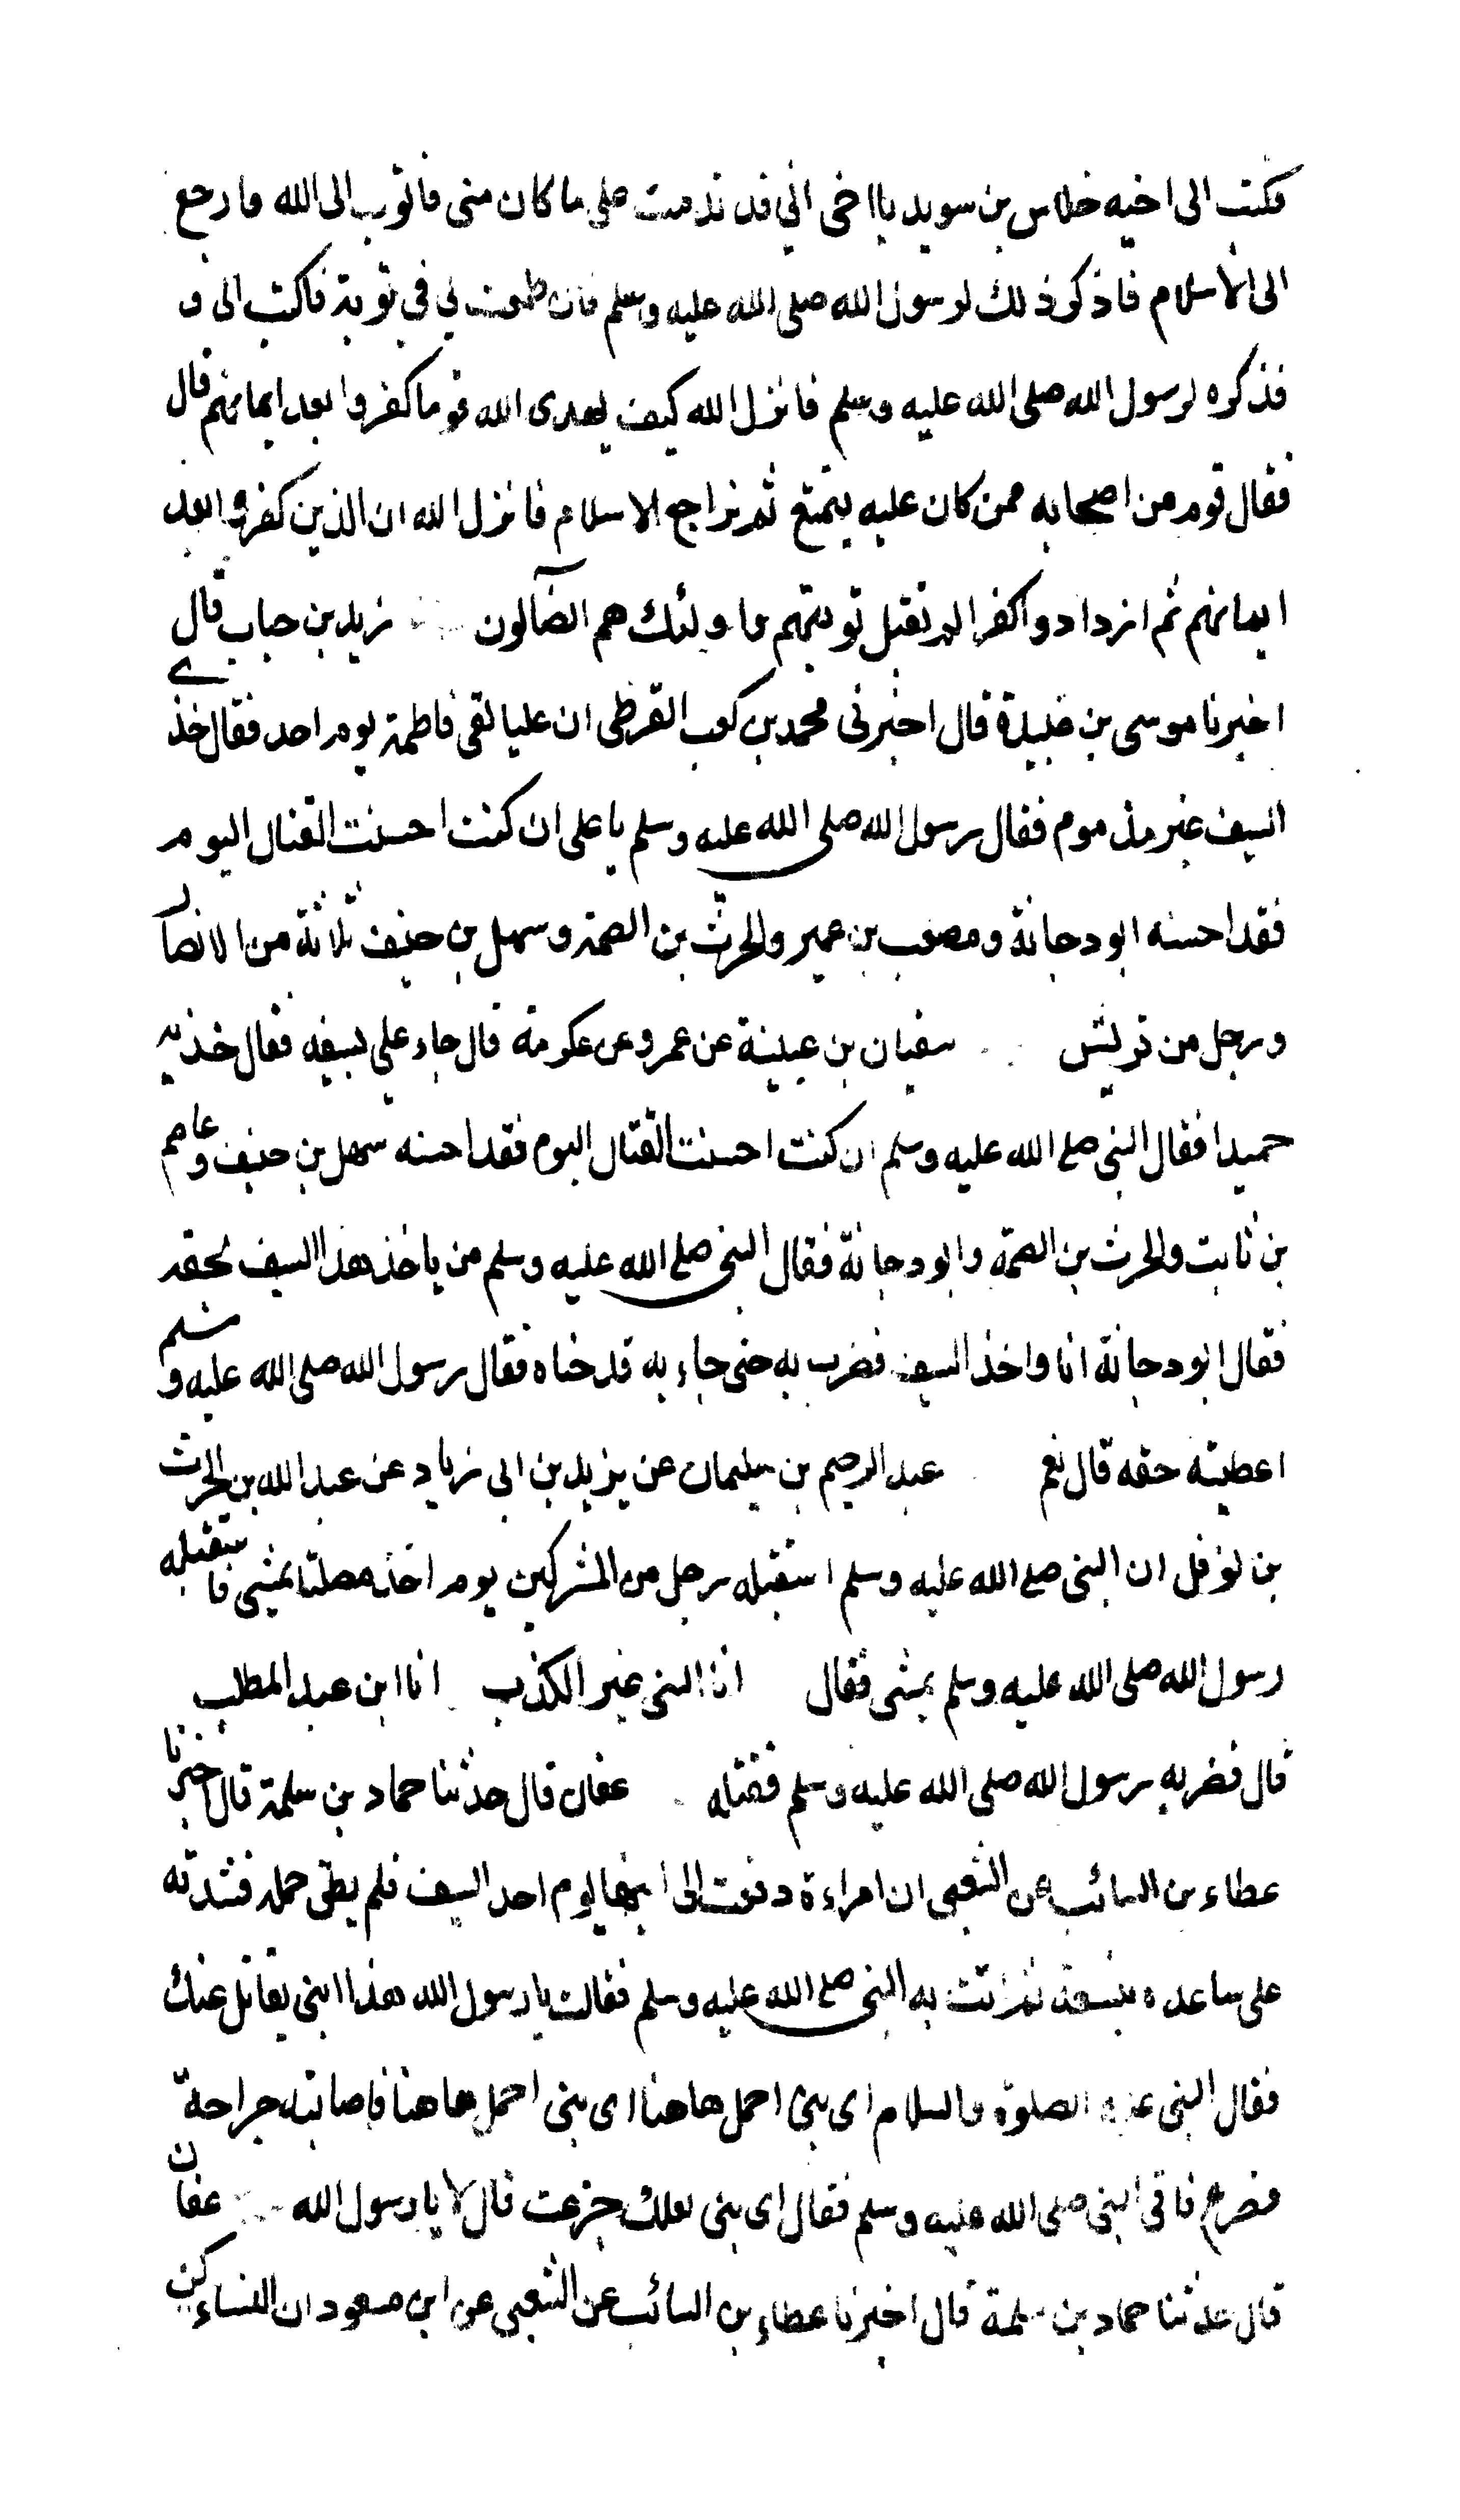 فكتب الى اخيه خلاس بن سويد يا اخى اني قد ندمت على ما كان منى فاتوب الى الله وارجع
الى الاسلام فاذكر ذلك لرسول الله صلى الله عليه وسلم فان طمعت لي في توبة فاكتب الى و
فذكره لرسول الله صلى الله عليه وسلم فانزل الله كيف يهدى الله قوما كفروا بعد ايمانهم قال
فقال قوم من اصحابه ممن كان عليه يتمتع ثم يراجع الاسلام فانزل الله ان الذين كفروا بعد
ايمانهم ثم ازدادوا كفرا لن تقبل توبتهم واولئك هم الضآلون زيد بن حباب قال
اخبرنا موسى بن عبيدة قال اخبرنى محمد بن كعب القرظى ان عليا لقى فاطمة يوم احد فقال خذى
السيف غير مذموم فقال رسول الله صلى الله عليه وسلم يا على ان كنت احسنت القتال اليوم
فقد احسنه ابو دجانة ومصعب بن عمير والحرث بن الصمة وسهل بن حنيف ثلاثة من الانصار
ورجل من قريش سفيان بن عيينة عن عمرو عن عكرمة قال جاء علي بسيفه فقال خذيه
حميدا فقال النبى صلى الله عليه وسلم ان كنت احسنت القتال اليوم فقد احسنه سهل بن حنيف وعاصم
بن ثابت والحرث بن الصمة وابو دجانة فقال النبى صلى الله عليه وسلم من ياخذ هذا السيف بحقه
فقال ابو دجانة انا واخذ السيف فضرب به حتى جاء به قد حناه فقال رسول الله صلى الله عليه وسلم
اعطيته حقه قال نعم عبد الرحيم بن سليمان عن يزيد بن ابى زياد عن عبد الله بن الحرث
بن نوفل ان النبى صلى الله عليه وسلم استقبله رجل من المشركين يوم احد مصلتا يمشى فاستقبله
رسول الله صلى الله عليه وسلم يمشى فقال انا النبى غير الكذب انا ابن عبد المطلب
قال فضربه رسول الله صلى الله عليه وسلم فقتله عفان قال حدثنا حماد بن سلمة قال اخبرنا
عطاء بن السائب عن الشعبى ان امراءة دفعت الى ابنها يوم احد السيف فلم يطق حمله فشدته
على ساعده بنسعة ثم اتت به النبى صلى الله عليه وسلم فقالت يا رسول الله هذا ابنى يقاتل عنك
فقال النبى عليه الصلوة والسلام اى بنى احمل هاهنا اى بنى احمل هاهنا فاصابته جراحة
فصرع فاتى النبى صلى الله عليه وسلم فقال اى بنى لعلك جزعت قال لا يا رسول الله عفان
قال حدثنا حماد بن سلمة قال اخبرنا عطاء بن السائب عن الشعبى عن ابن مسعود ان النساء كن